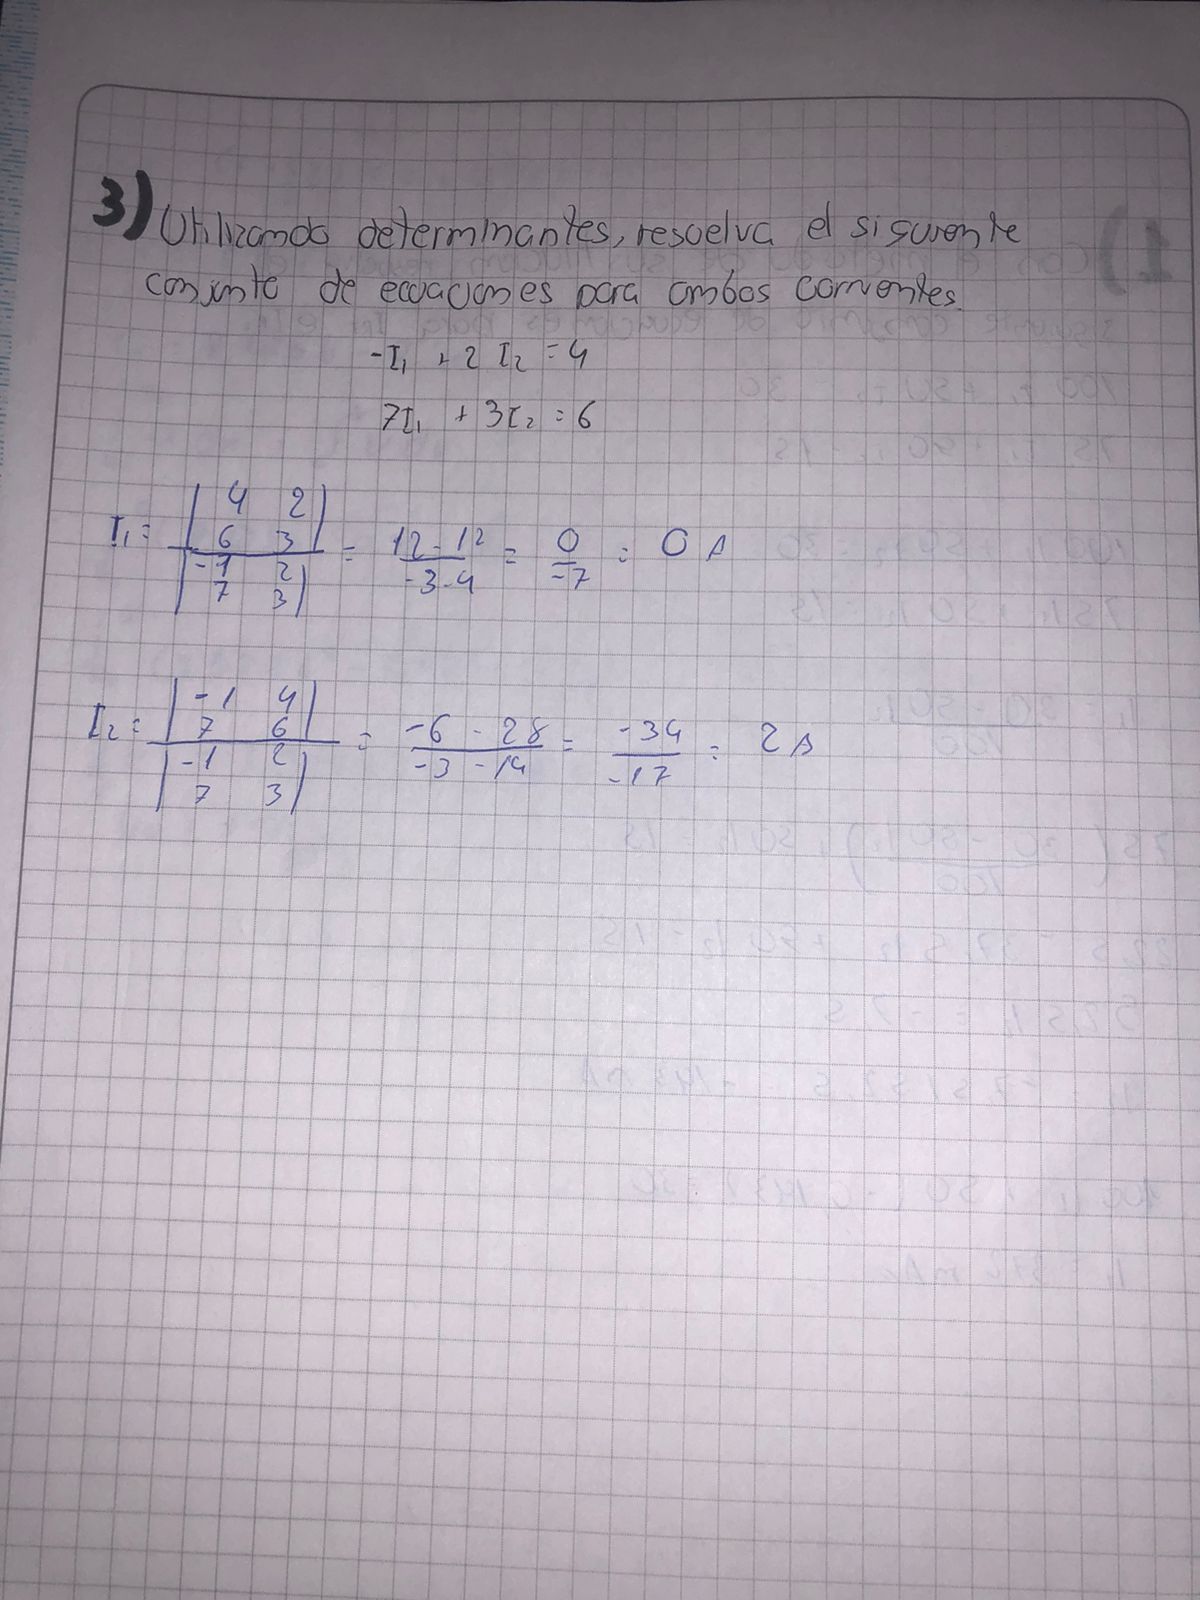 3) Utilizando determinantes, resuelva el siguiente
conjunto de ecuaciones para ambas corrientes.
-I₁ + 2 I₂ = 4
7I₁ + 3I₂ = 6
I₁ = |4 2; 6 3| / |-1 2; 7 3| = (12 - 12)/(-3 - 4) = 0/-7 = 0 A
I₂ = |-1 4; 7 6| / |-1 2; 7 3| = (-6 - 28)/(-3 - 14) = -34/-17 = 2 A